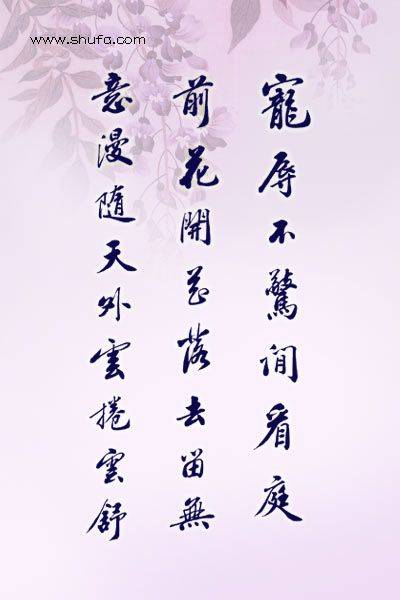 www.shufa.com
寵辱不驚閒看庭
前花開花落去留無
意漫隨天外雲捲雲舒